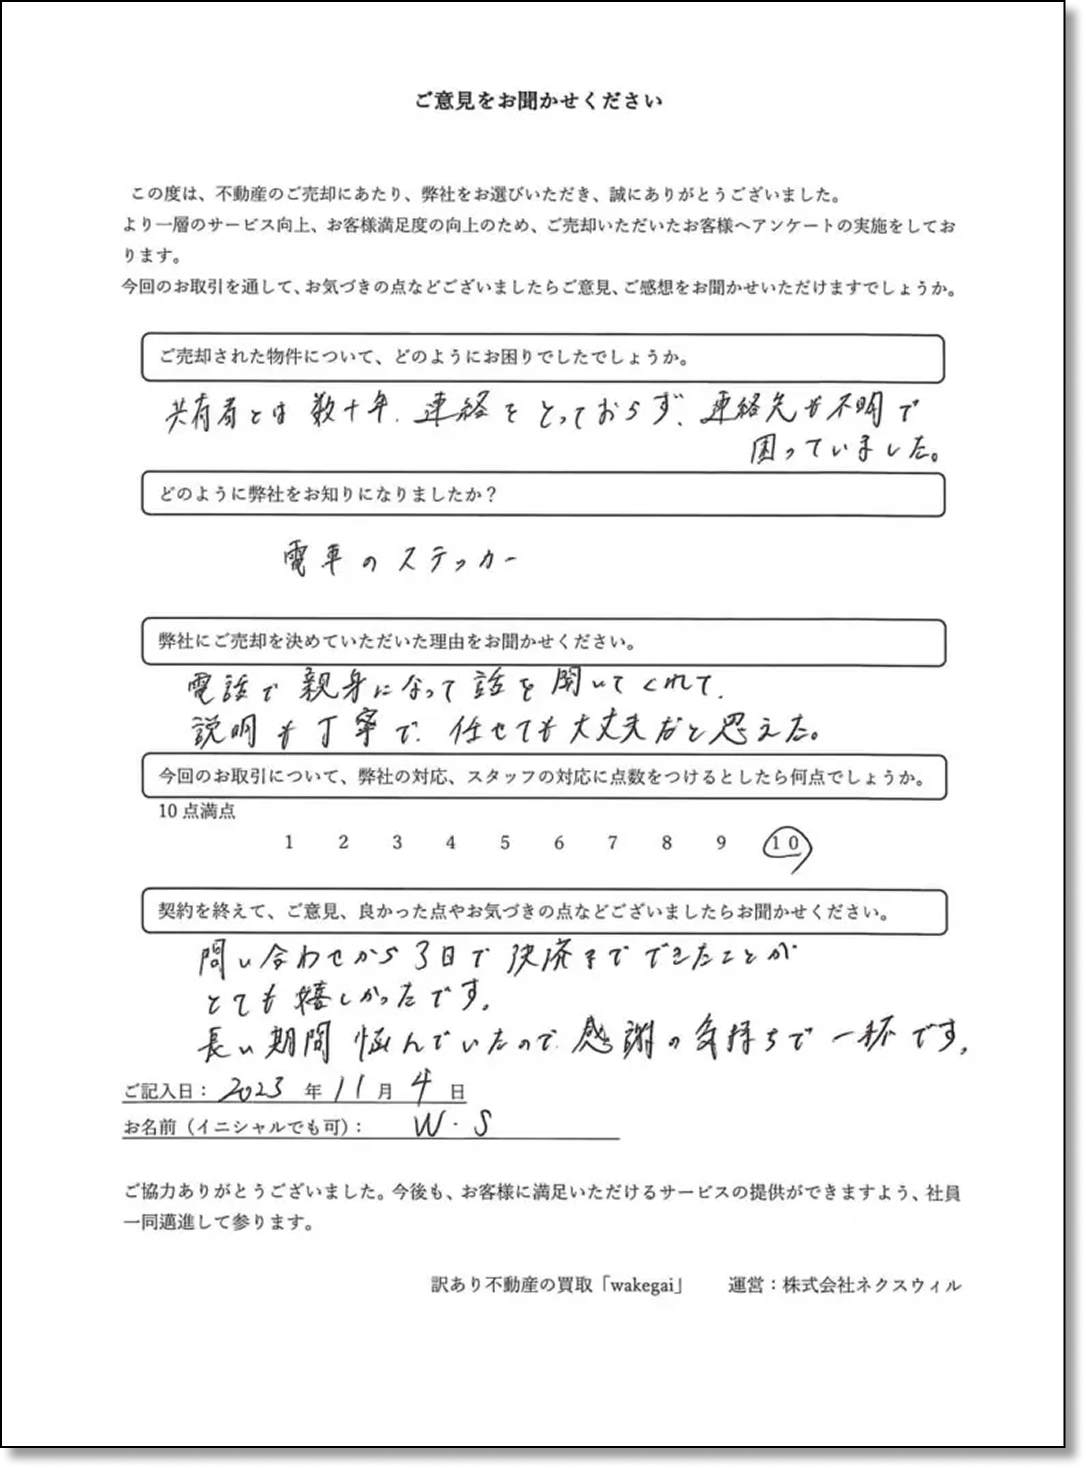 ご意見をお聞かせください
この度は、不動産のご売却にあたり、弊社をお選びいただき、誠にありがとうございました。
より一層のサービス向上、お客様満足度の向上のため、ご売却いただいたお客様へアンケートの実施をしてお
ります。
今回のお取引を通して、お気づきの点などございましたらご意見、ご感想をお聞かせいただけますでしょうか。
ご売却された物件について、どのようにお困りでしたでしょうか。
共有者とは数十年、連絡をとっておらず、連絡先も不明で
困っていました。
どのように弊社をお知りになりましたか?
電車のステッカー
弊社にご売却を決めていただいた理由をお聞かせください。
電話で親身になって話を聞いてくれて、
説明も丁寧で、任せても大丈夫だと思えた。
今回のお取引について、弊社の対応、スタッフの対応に点数をつけるとしたら何点でしょうか。
10 点満点
1 2 3 4 5 6 7 8 9 10
契約を終えて、ご意見、良かった点やお気づきの点などございましたらお聞かせください。
問い合わせから3日で決済までできたことが
とても嬉しかったです。
長い期間悩んでいたので、感謝の気持ちで一杯です。
ご記入日: 2023 年 11 月 4 日
お名前(イニシャルでも可): W・S
ご協力ありがとうございました。今後も、お客様に満足いただけるサービスの提供ができますよう、社員
一同邁進して参ります。
訳あり不動産の買取「wakegai」 運営:株式会社ネクスウィル